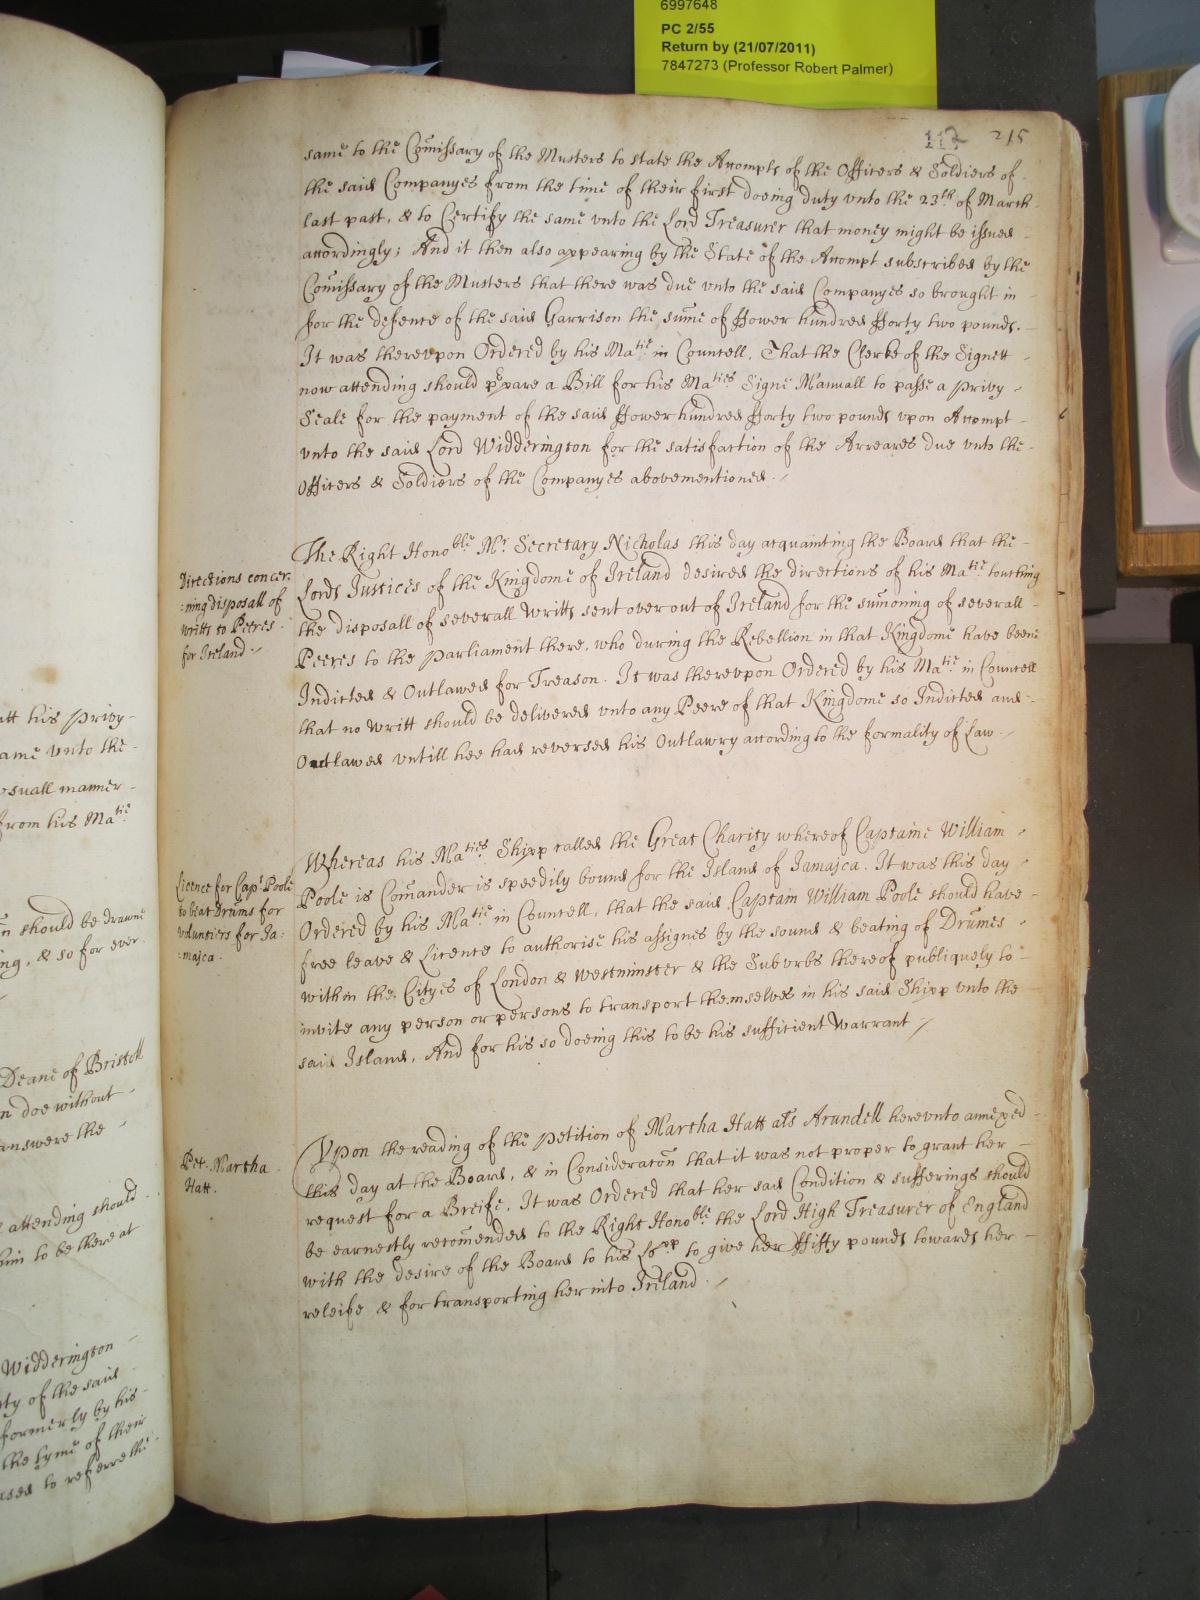 6997648
PC 2/55
Return by (21/07/2011)
7847273 (Professor Robert Palmer)
117 215
same to the Comissary of the Musters to state the Accompts of the Officers & Soldiers of
the said Companyes from the time of their first doeing duty vnto the 23th of March
last past, & to Certify the same vnto the Lord Treasurer that money might be issued
accordingly; And it then also appearing by the State of the Accompt subscribed by the
Comissary of the Musters that there was due vnto the said Companyes so brought in
for the defence of the said Garrison the sume of ffower hundred fforty two pounds.
It was therevpon Ordered by his Matie in Councell, That the Clerke of the Signett
now attending should prpare a Bill for his Maties Signe Manuall to passe a privy
Seale for the payment of the said ffower hundred fforty two pounds vpon Accompt
vnto the said Lord Widderington for the satisfaction of the Arreares due vnto the
Officers & Soldiers of the Companyes abovementioned.
The Right Honoble Mr Secretary Nicholas this day acquainting the Board that the
Lords Justices of the Kingdome of Ireland desired the directions of his Matie touching
the disposall of severall Writts sent over out of Ireland for the sumoning of severall
Peeres to the Parliament there, who during the Rebellion in that Kingdome have beene
Indicted & Outlawed for Treason. It was therevpon Ordered by his Matie in Councell
that no Writt should be delivered vnto any Peere of that Kingdome so Indicted and
Outlawed vntill hee had reversed his Outlawry according to the formality of Law.
Directions concer:
:ning disposall of
writts to Peeres
for Ireland.
Whereas his Maties Shipp called the Great Charity whereof Captaine William
Poole is Comander is speedily bound for the Island of Jamajca. It was this day
Ordered by his Matie in Councell, that the said Captain William Poole should have
free leave & Licence to authorise his assignes by the sound & beating of Drumes
within the Cityes of London & Westminster & the Suburbs thereof publiquely to
invite any person or persons to transport themselves in his said Shipp vnto the
said Island, And for his so doeing this to be his sufficient Warrant
Licence for Capt Poole
to beat Drums for
voluntiers for Ja:
:majca.
Vpon the reading of the petition of Martha Hatt als Arundell herevnto annexed
this day at the Board, & in Consideracon that it was not proper to grant her
request for a Breife, It was Ordered that her sad Condition & sufferings should
be earnestly recomended to the Right Honoble the Lord High Treasurer of England
with the desire of the Board to his Lopp to give her ffifty pounds towards her
releife & for transporting her into Ireland.
Pet. Martha
Hatt.
att his privy
ame vnto the
vsuall manner
from his Matie
n should be drawne
ng, & so for ever
Deane of Bristoll
n doe without
answere the
attending should
him to be there at
Widderington
ty of the said
formerly by his
the tyme of their
ased to referre the